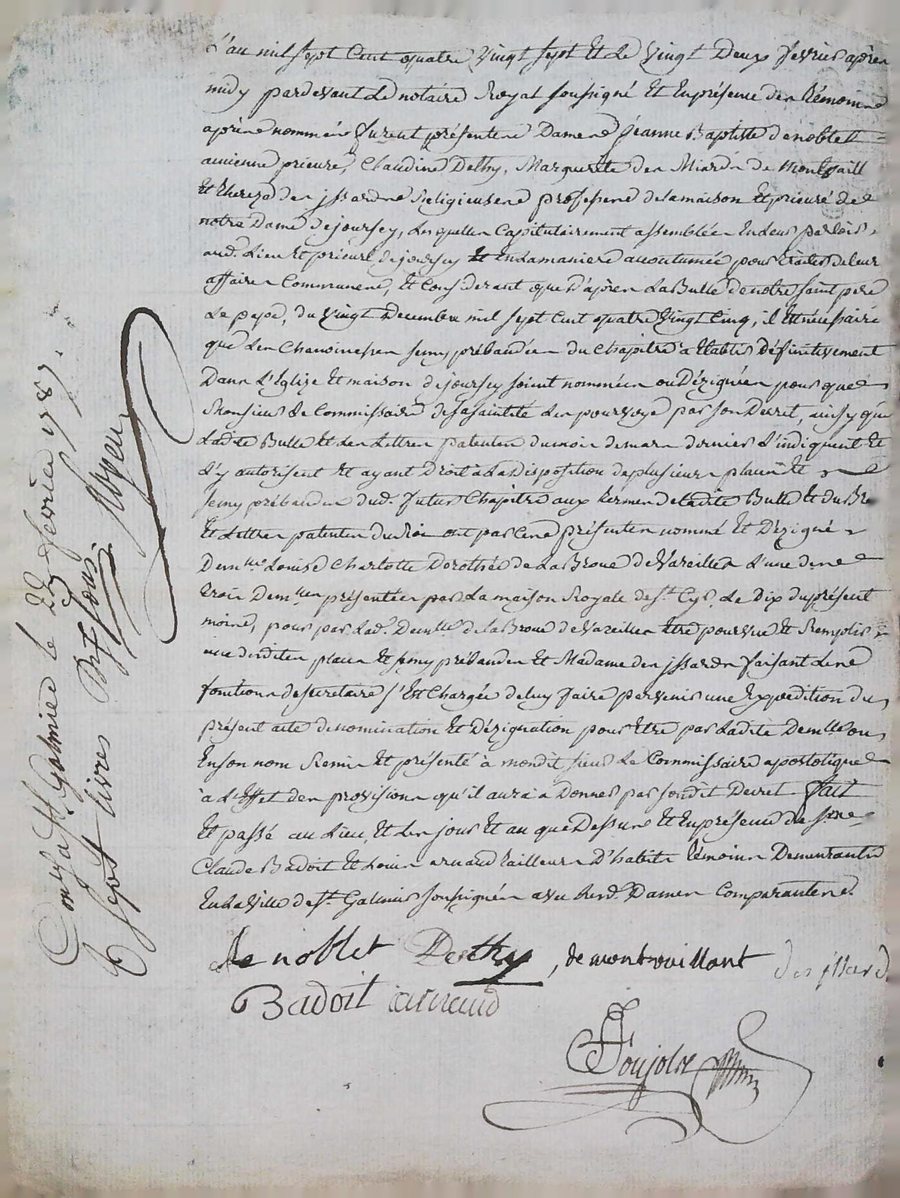 L'an mil sept Cent quatre Vingt sept Et Le Vingt Deux fevrier apres
midy pardevant Le notaire Royal soussigné Et En présence des témoins
apres nommés furent présentes Dames Jeanne Baptiste de noblet
ancienne prieure, Claudine Desthy, Marguerite des Miards de
Et thereze des jssards Religieuses professes de la maison Et prieuré de
notre Dame de joursey, Lesquelles Capitulairement assemblées En Leur parloir
aud. Lieu Et prieuré de joursey Et En La maniere accoutumée pour traiter de Leur
affaires Communes, Et Considerant que d'apres La Bulle de notre saint pere
Le pape, du Vingt Decembre mil sept Cent quatre Vingt Cinq, il Est nécessaire
que Les Chanoinesses semy prébandées du Chapitre à Etablir Définitivement
Dans L'Eglize Et maison de joursey soient nommées ou Dézignées pour que
Monsieur Le Commissaire de sa sainteté Les pourvoye par son Decret, ainsy que
Ladite Bulle Et Les Lettres patentes du mois de mars dernier L'indiquent Et
L'y autorisent Et ayant Droit à La disposition de plusieurs places Et
semy prébandes dud. futur Chapitre aux termes de Ladite Bulle Et du
Et Lettres patentes du Roi ont par Ces présentes nommé Et Dézigné
Demlle Louise Charlotte Dorothée de La Broue de Vareilles L'une des
trois Demlles présentées par La maison Royale de St. Cyr Le Dix du présent
mois, pour par Lad. Demlle de la Broue de Vareilles Etre pourvue Et Remplir
une desdites places Et semy prébandes Et Madame des jssards faisant Les
fonctions de secretaire s'Est Chargée de luy faire parvenir une Expedition du
présent acte de nomination Et Dézignation pour Etre par Ladite Demlle ou
En son nom Remis Et présenté à mondit sieur Le Commissaire apostolique
à L'Effet des provisions qu'il aura à Donner par sondit Decret fait
Et passé au Lieu, Et Les jour Et an que Dessus Et En présence de sieurs
Claude Badoit Et Louis arnaud tailleurs D'habits témoins Demeurants
En La Ville de St. Galmier soussignés avec Lesd. Dames Comparantes.
de noblet Desthy, de montrouillant des jssards
Badoit arnaud
Poujolat
Con.lé à St. Galmier le 22 fevrier 1787.
sept livres sous.